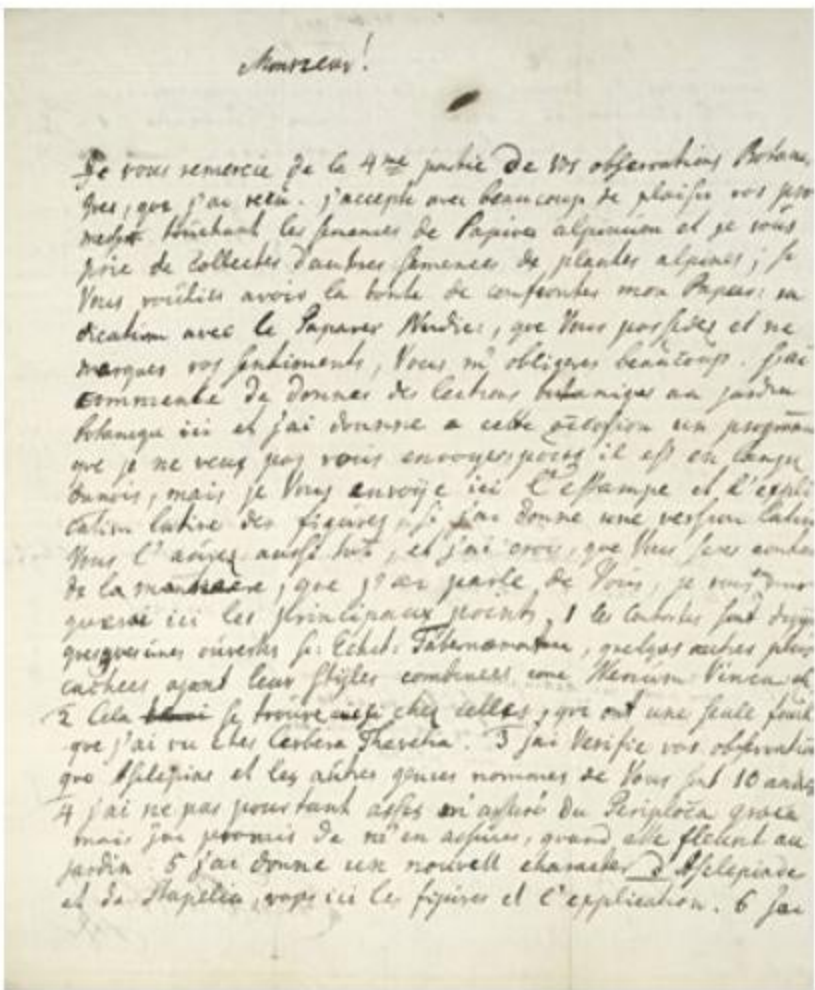 Monsieur!
Je vous remercie de la 4me partie de vos observations Botani
ques, que j'ai reçu. j'accepte avec beaucoup de plaisir vos pro
messe touchant les semences de Papaver alpinum et je vous
prie de collecter d'autres semences de plantes alpines; si
Vous voulies avoir la bonté de confronter mon Papaver
avec le Papaver Nudic:, que Vous possedez et me
marquer vos sentiments, Vous m'obligeres beaucoup. J'ai
commencé de donner des lections botaniques au jardin
botanique ici et j'ai donnné a cette occasion un programm
que je ne veux pas vous envoyer il est en langu
danois, mais je Vous envoÿe ici l'estampe et l'expli
cation latine des figures, si j'ai donne une version latin
Vous l'aures aussi tôt, et j'ai crois, que Vous seres conten
de la maniere, que j'ai parlé de Vous, je
ici les principaux points, 1 les Contortes sont
ouvertes Tabernæmontana, quelques autres plus
cachées ayant leur styles Nerium Vinca et
2 Cela se trouve chez celles, que ont une seule
que j'ai vu ches Cerbera Thevetia. 3 j'ai Verifié vos observation
que Asclepias et les autres genres nommes de Vous ont 10 anther
4 j'ai ne pas pourtant asses m'assuré du Periploca græca
mais j'ai promis de m'en assurer, quand elle fleurit au
jardin. 5 j'ai donne un nouvell character d'Asclepiade
et da Stapelia, ici les figures et l'explication. 6 J'ai